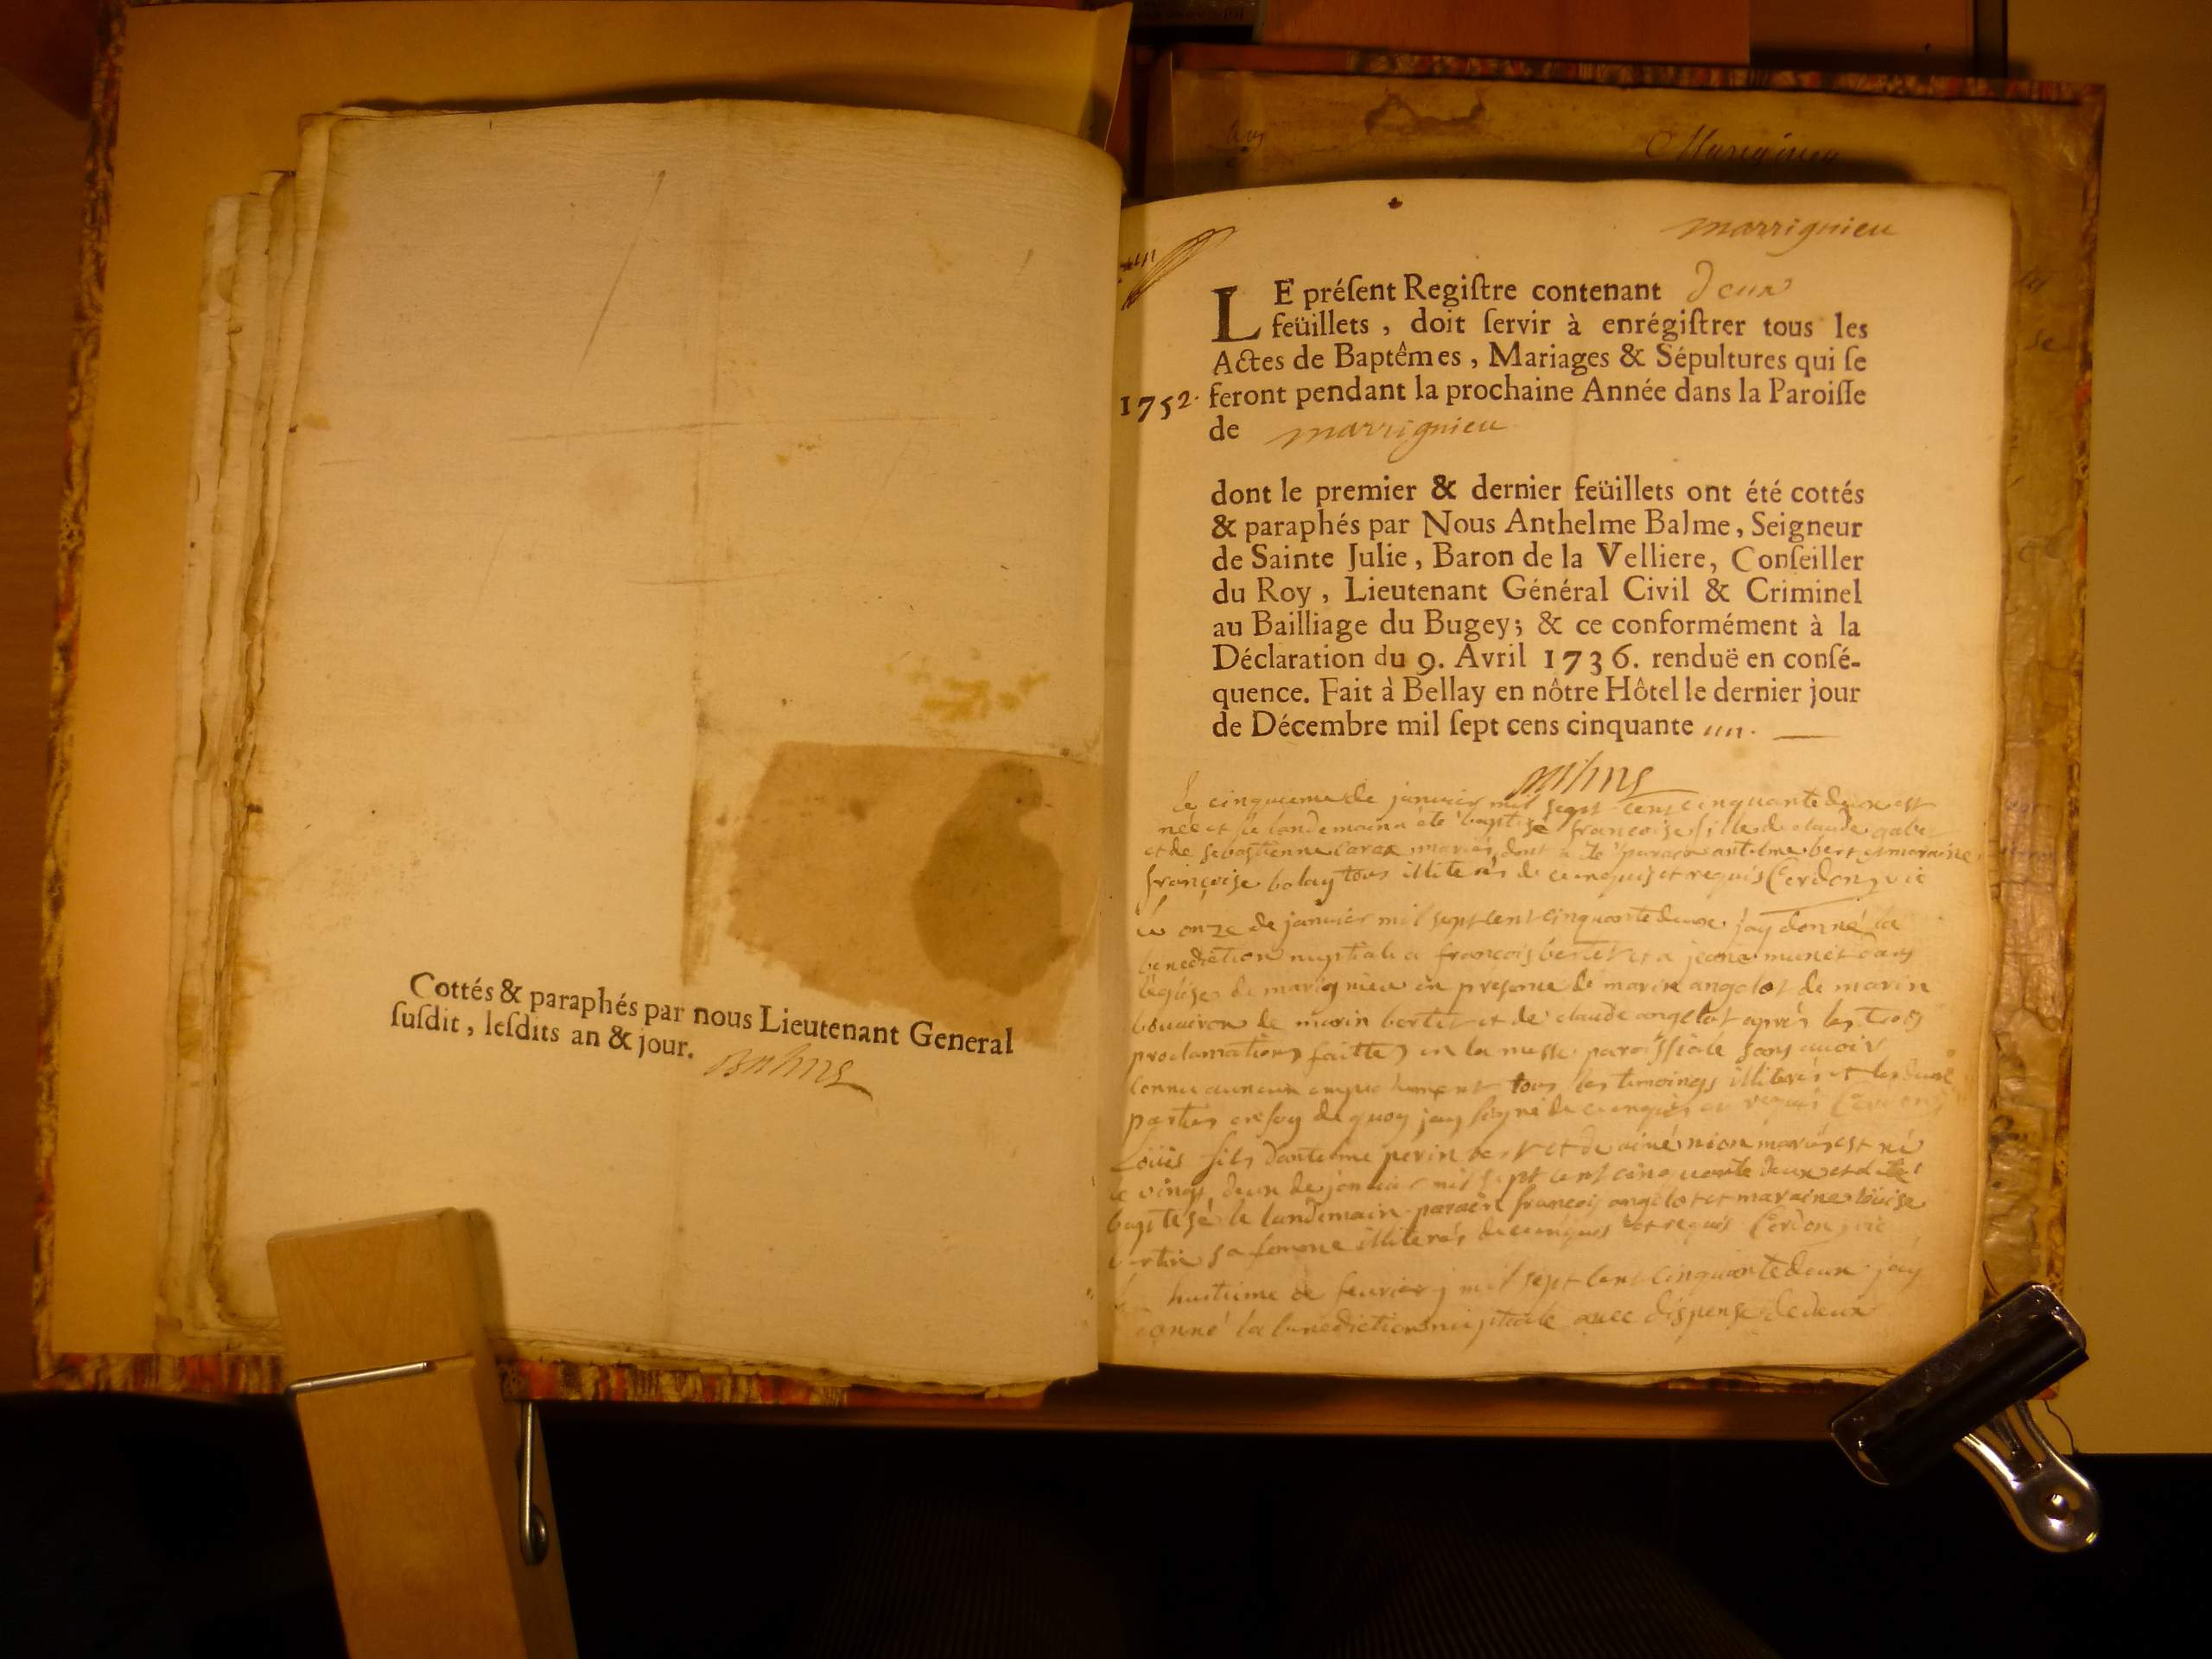 Cottés & paraphés par nous Lieutenant General
ſuſdit, leſdits an & jour.
Marignieu
marrignieu
LE préſent Regiſtre contenant deux
feüillets, doit ſervir à enrégiſtrer tous les
Actes de Baptêmes, Mariages & Sépultures qui ſe
1752. feront pendant la prochaine Année dans la Paroiſſe
de marrignieu
dont le premier & dernier feüillets ont été cottés
& paraphés par Nous Anthelme Balme, Seigneur
de Sainte Julie, Baron de la Velliere, Conſeiller
du Roy, Lieutenant Général Civil & Criminel
au Bailliage du Bugey; & ce conformément à la
Déclaration du 9. Avril 1736. renduë en conſé-
quence. Fait à Bellay en nôtre Hôtel le dernier jour
de Décembre mil ſept cens cinquante un.
Le cinquieme de janvier mil sept cent cinquante deux est
née et le landemain a été baptisé françoise fille de claude
et de sebastienne mariés dont a été parain antelme bert et maraine
françoise balay tous illiterés de ce enquis et requis Cerdon vic
le onze de janvier mil sept cent cinquante deux jay donné la
benediction nuptiale a françois bertet et a jeane munet dans
l'eglise de marignieu en presence de marin angelot de marin
bouviron de marin bertet et de claude angelot aprés les trois
proclamations faittes en la messe paroissiale sans avoir
connu aucun tous les temoings illiterés et les deux
parties en foy de quoy jay signé de ce enquis et requis Cerdon
Loüis fils dantelme perin bert et de aimé nion mariés est né
le vingt deux de janvier mil sept cent cinquante deux et a été
baptisé le landemain parain françois angelot et maraine loüise
sa femme illiterés de ce enquis et requis Cerdon vic
huitieme de fevrier mil sept cent cinquante deux jay
donné la benediction nuptiale avec dispense de deux